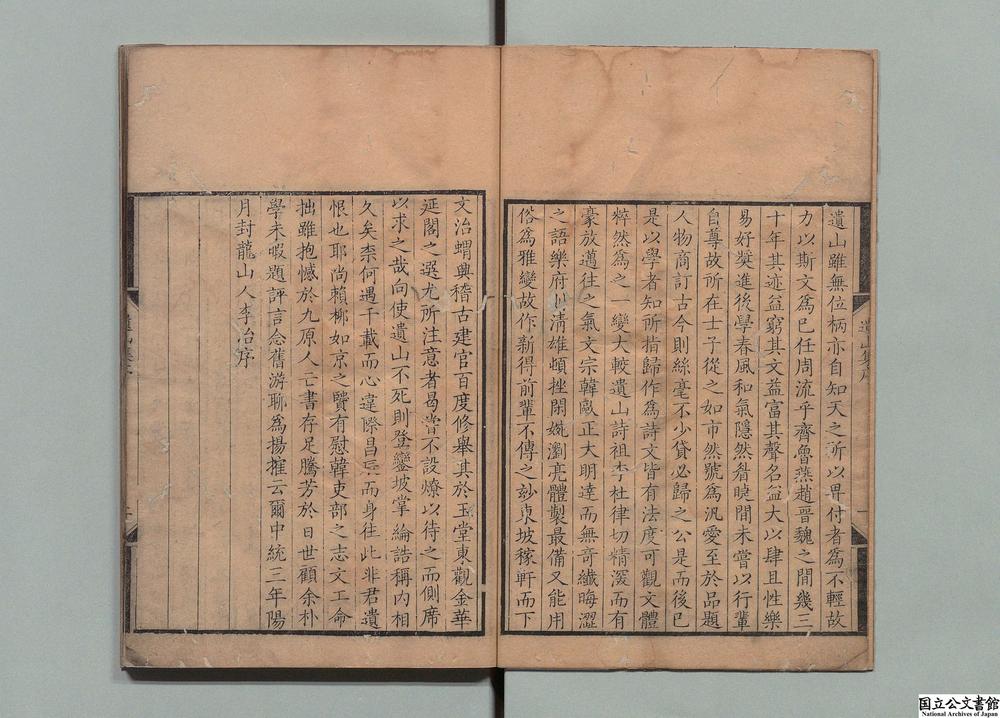 遺山雖無位柄亦自知天之所以畀付者為不輕故
力以斯文為已任周流乎齊魯燕趙晉魏之間幾三
十年其迹益窮其文益富其聲名益大以肆且性樂
易好奬進後學春風和氣隱然眉睫間未嘗以行輩
自尊故所在士子從之如市然號為汎愛至於品題
人物商訂古今則絲毫不少貸必歸之公是而後已
是以學者知所指歸作為詩文皆有法度可觀文體
粹然為之一變大較遺山詩祖李杜律切精深而有
豪放邁往之氣文宗韓歐正大明達而無竒纖晦澀
之語樂府則清雄頓挫閑婉瀏亮體製最備又能用
俗為雅變故作新得前輩不傳之玅東坡稼軒而下
文治蝟興稽古建官百度修舉其於玉堂東觀金華
延閣之選尤所注意者曷嘗不設燎以待之而側席
以求之哉向使遺山不死則登鑾坡掌綸誥稱內相
久矣柰何遇千載而心違際昌辰而身往此非君遺
恨也耶尚賴柳如京之賢有慰韓吏部之志文工命
拙雖抱憾於九原人亡書存足騰芳於日世顧余朴
學未暇題評言念舊游聊為揚搉云爾中統三年陽
月封龍山人李冶序
国立公文書館
National Archives of Japan